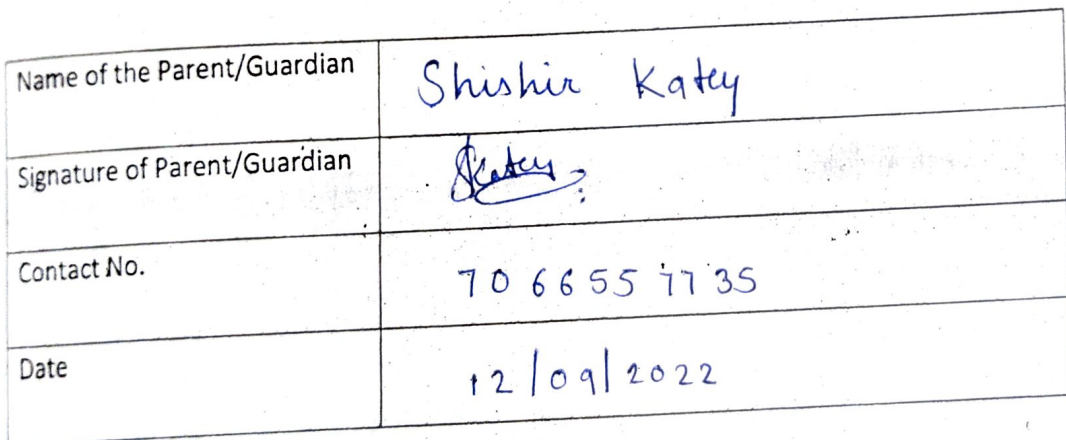 Name of the Parent/Guardian Shishir Katey
Signature of Parent/Guardian SKatey
Contact No. 7066557735
Date 12/09/2022